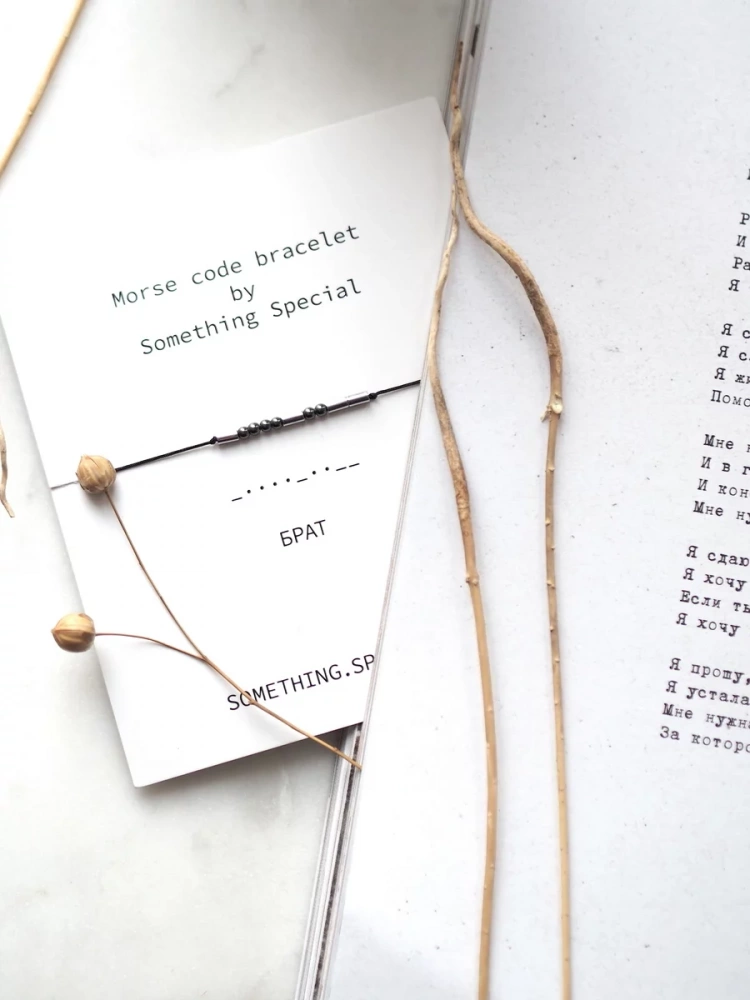 Morse code bracelet
by
Something Special
_...._..__
БРАТ
SOMETHING.SP
Р
И
Ра
Я
Я с
Я с
Я жи
Помо
Мне н
И в г
И кон
Мне ну
Я сдаю
Я хочу
Если ты
Я хочу
Я прошу,
Я устала
Мне нужн
За которо